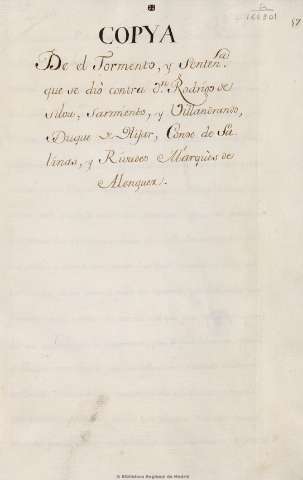 COPYA
De el Tormento, y Senten.ᶜⁱᵃ
que se diò contra Dⁿ. Rodrigo de
Silva, Sarmiento, y Villandrando,
Duque de Hijar, Conde de Sa-
linas, y Rivadeo Marquès de
Alenquer.
© Biblioteca Regional de Madrid